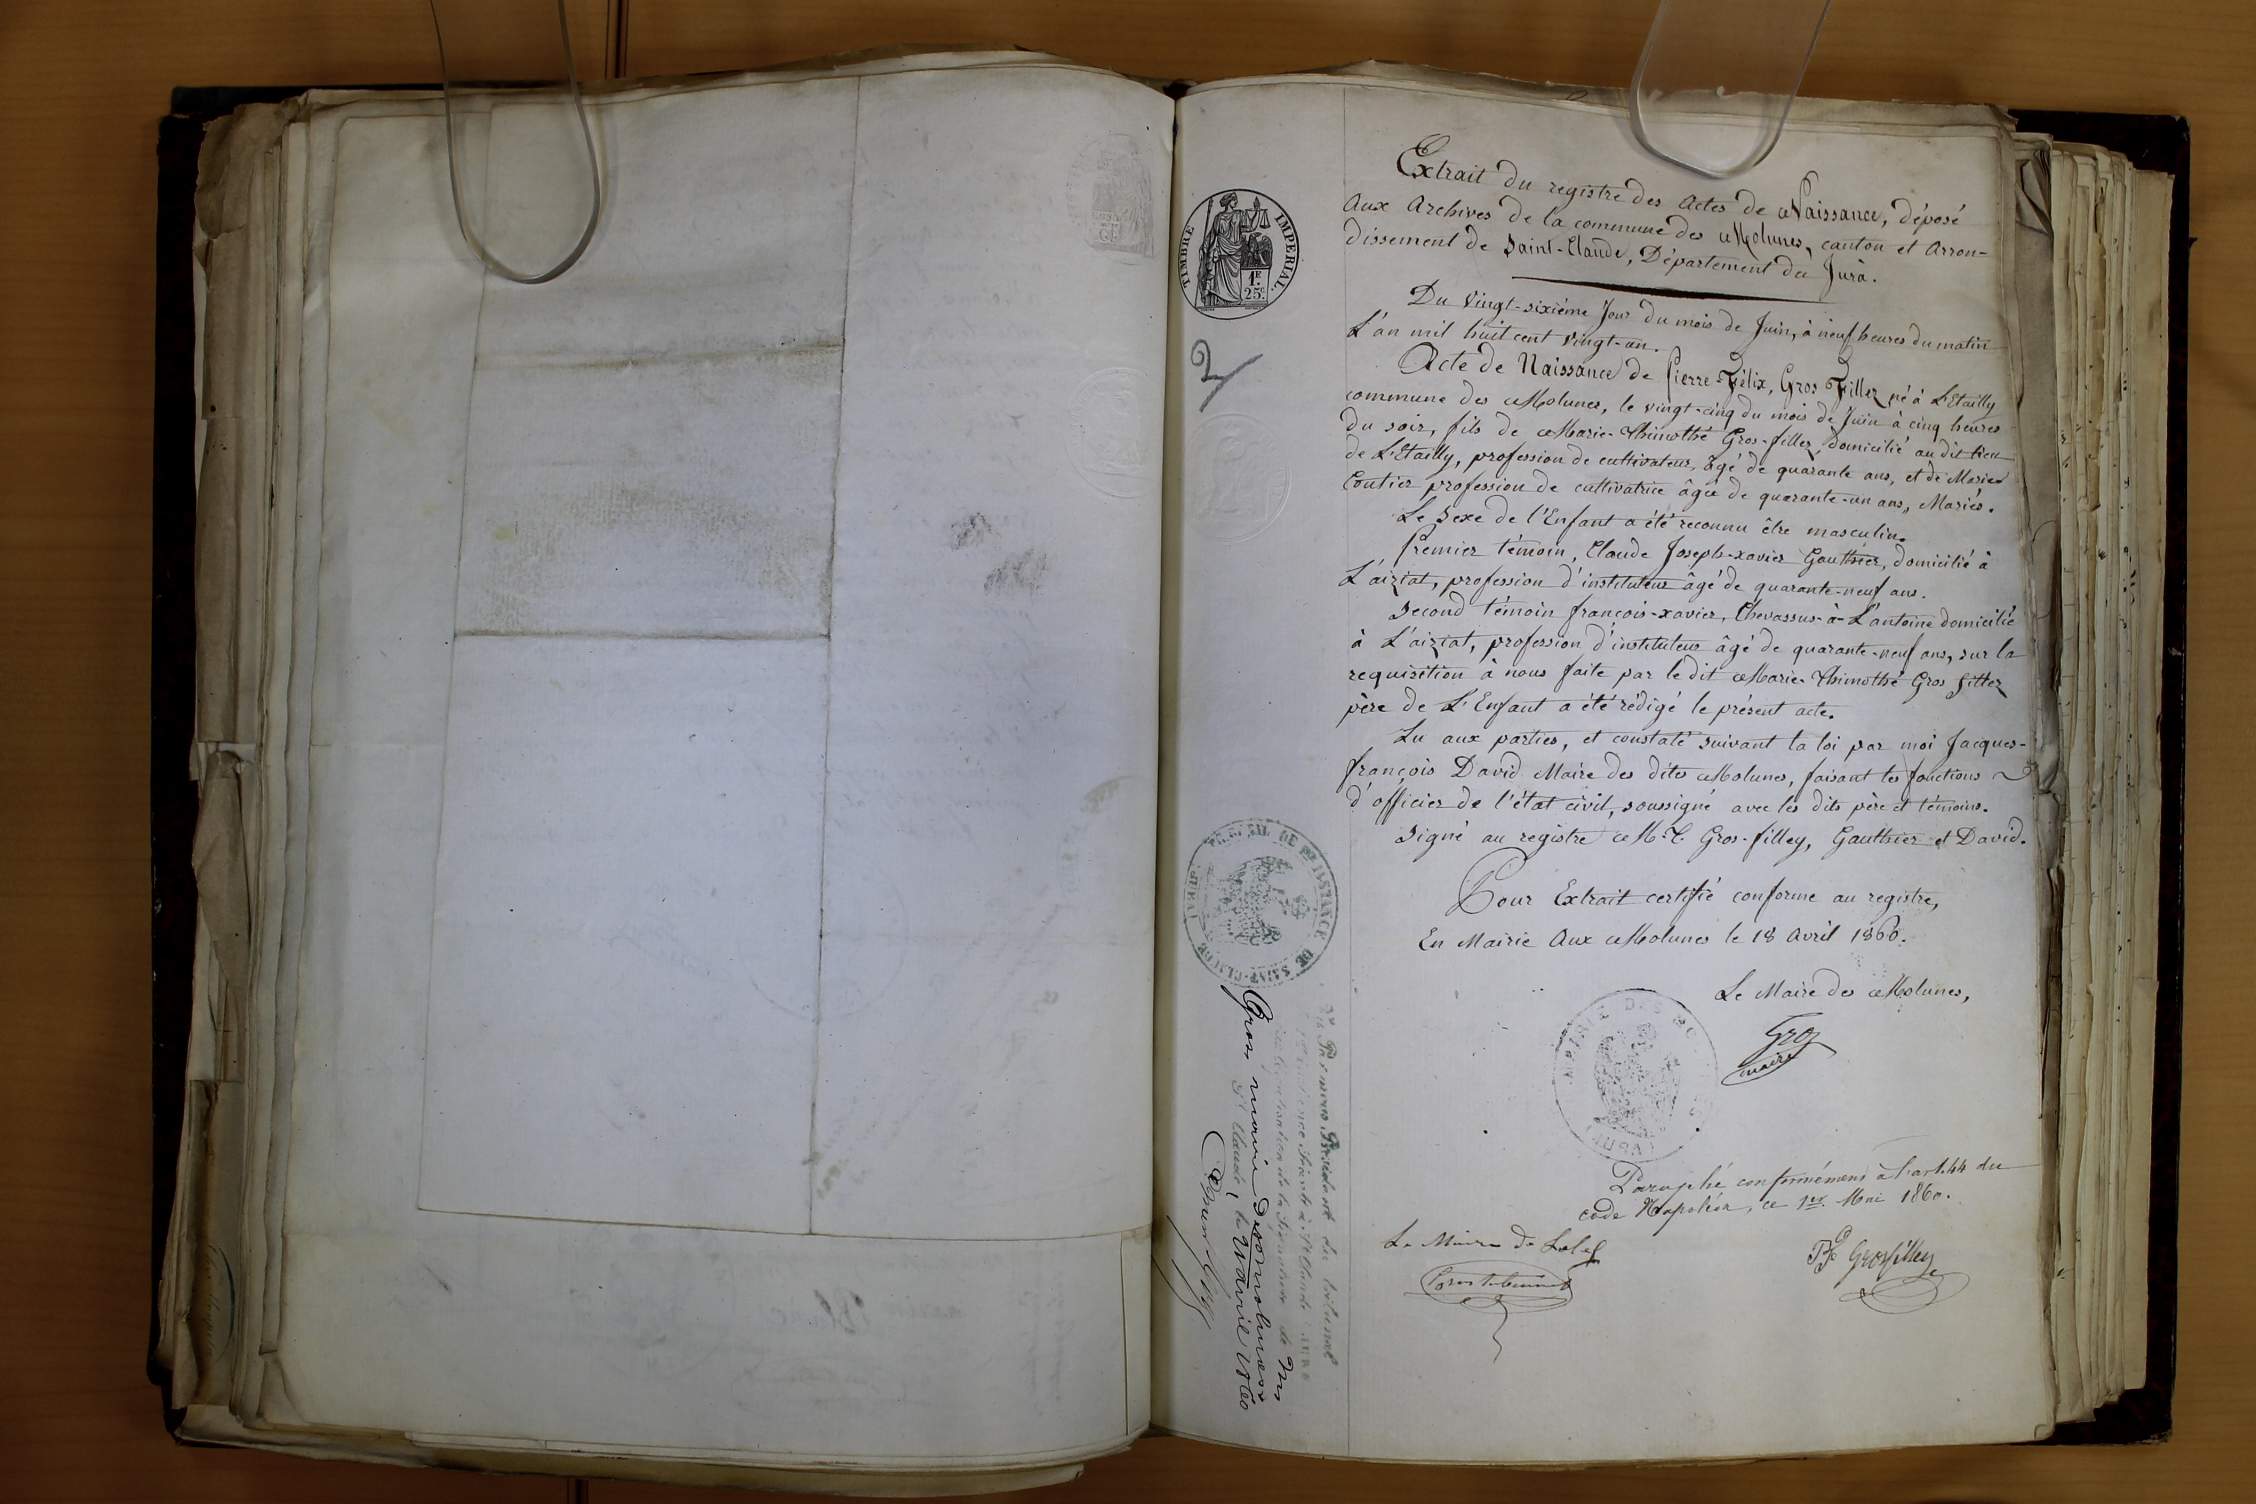 TIMBRE IMPERIAL.
1F
25c.
2
Extrait du registre des Actes de Naissance, déposé
Aux Archives de la commune des Molunes, canton et Arron-
dissement de Saint-Claude, Département du Jura.
Du Vingt-sixième Jour du mois de Juin, à neuf heures du matin
L'an mil huit cent vingt-un.
Acte de Naissance de Pierre-Félix, Gros Filley né à L'Etailly
commune des Molunes, le vingt-cinq du mois de Juin à cinq heures
du soir, fils de Marie-Thimothé Gros-filley domicilié au dit lieu
de L'Etailly, profession de cultivateur, âgé de quarante ans, et de Marie
Coutier profession de cultivatrice âgée de quarante-un ans, Mariés.
Le Sexe de l'Enfant a été reconnu être masculin.
Premier témoin, Claude Joseph-xavier Gauthier, domicilié à
L'aiziat, profession d'instituteur âgé de quarante-neuf ans.
Second témoin françois-xavier, Chevassus-à-L'antoine domicilié
à L'aiziat, profession d'instituteur âgé de quarante-neuf ans, sur la
requisition à nous faite par le dit Marie-Thimothé Gros filley
père de L'Enfant a été rédigé le présent acte.
Lu aux parties, et constaté suivant la loi par moi Jacques-
françois David Maire des dites Molunes, faisant les fonctions
d'officier de l'état civil, soussigné avec les dits père et témoins.
Signé au registre M-T. Gros-filley, Gauthier et David.
Pour Extrait certifié conforme au registre,
En Mairie Aux Molunes le 18 Avril 1860.
Le Maire des Molunes,
Gros
maire
Paraphé conformément à l'art. 44 du
code Napoléon, ce 1er. Mai 1860.
Le Maire de
Grosfilley
TRIBUNAL DE 1ERE INSTANCE DE SAINT-CLAUDE
Président du tribunal
de la Signature de Mr
Gros, maire des molunes
St Claude, le Avril 1860